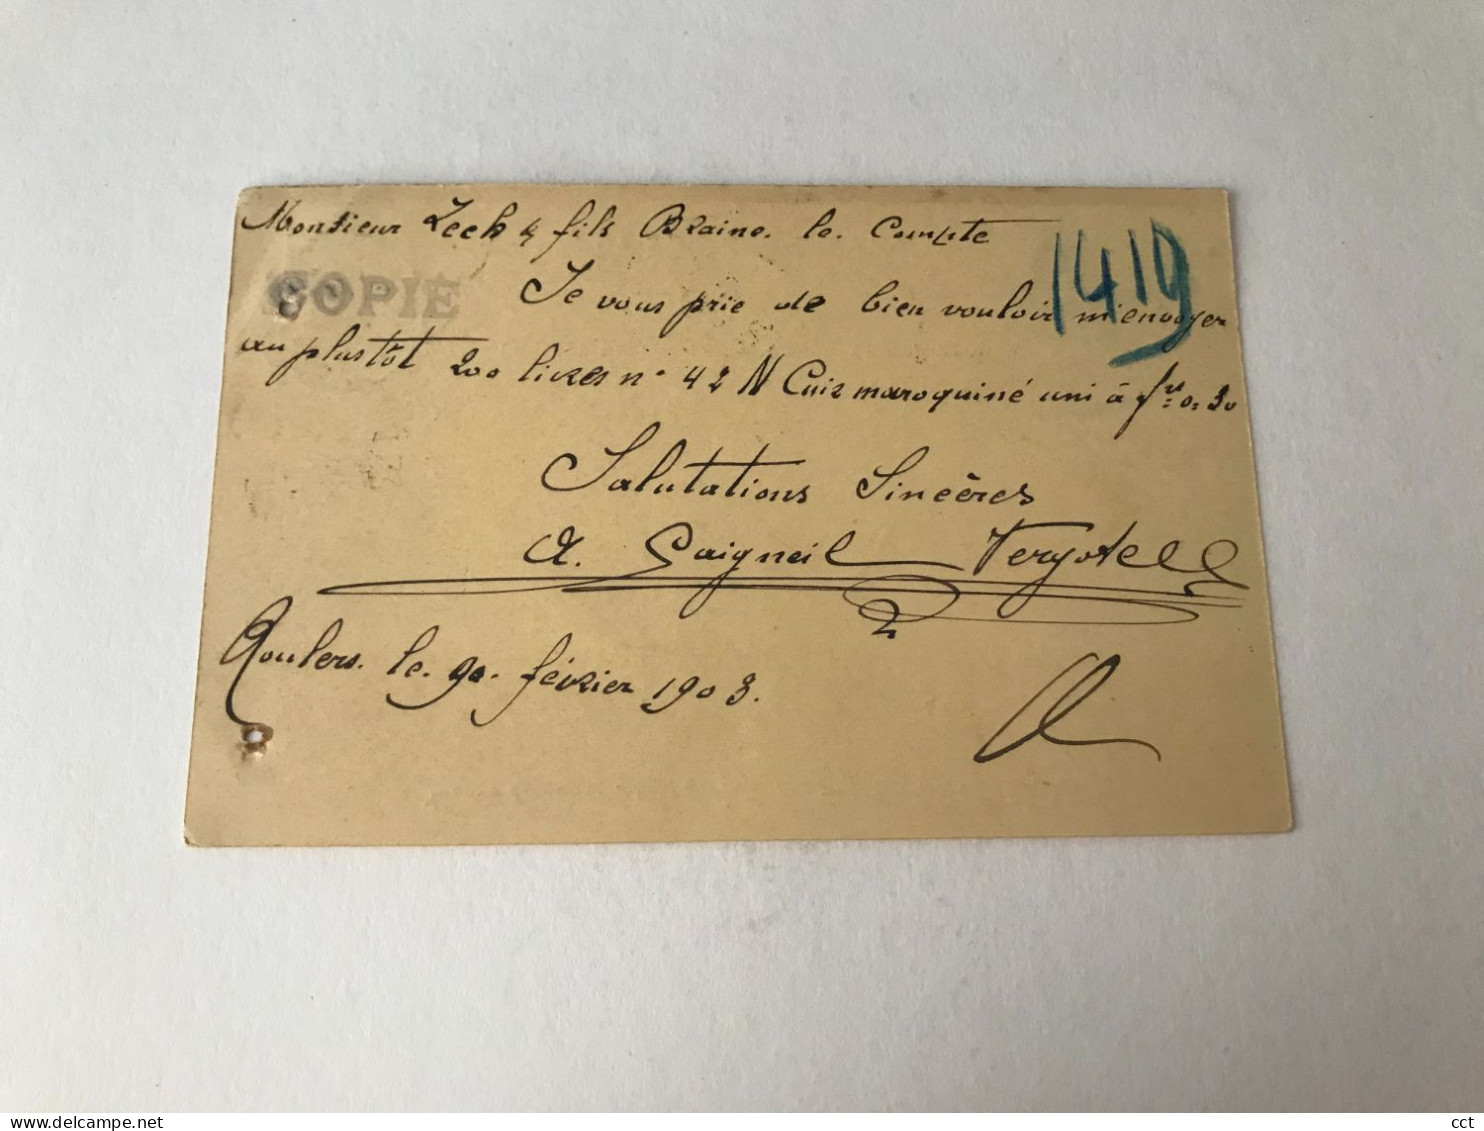 Monsieur Zech & fils Braine. le. Compte
1419
COPIE
Je vous prie de bien vouloir m'envoyer
au plustôt 200 livres n° 42 N Cuir maroquiné uni à frs 0.30
Salutations Sincères
A.
Roulers. le. 90. février 1903.
cct